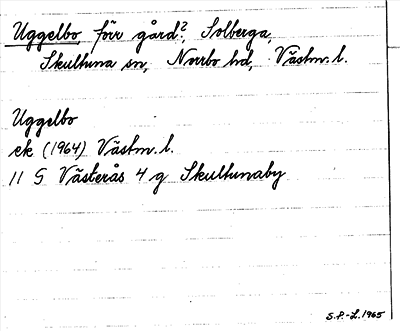 Uggelbo förr gård?, Solberga,
Skultuna sn, Norrbo hd, Västm. l.
Uggelbo
ek (1964) Västm. l.
11 G Västerås 4 g Skultunaby
S.P.-L. 1965